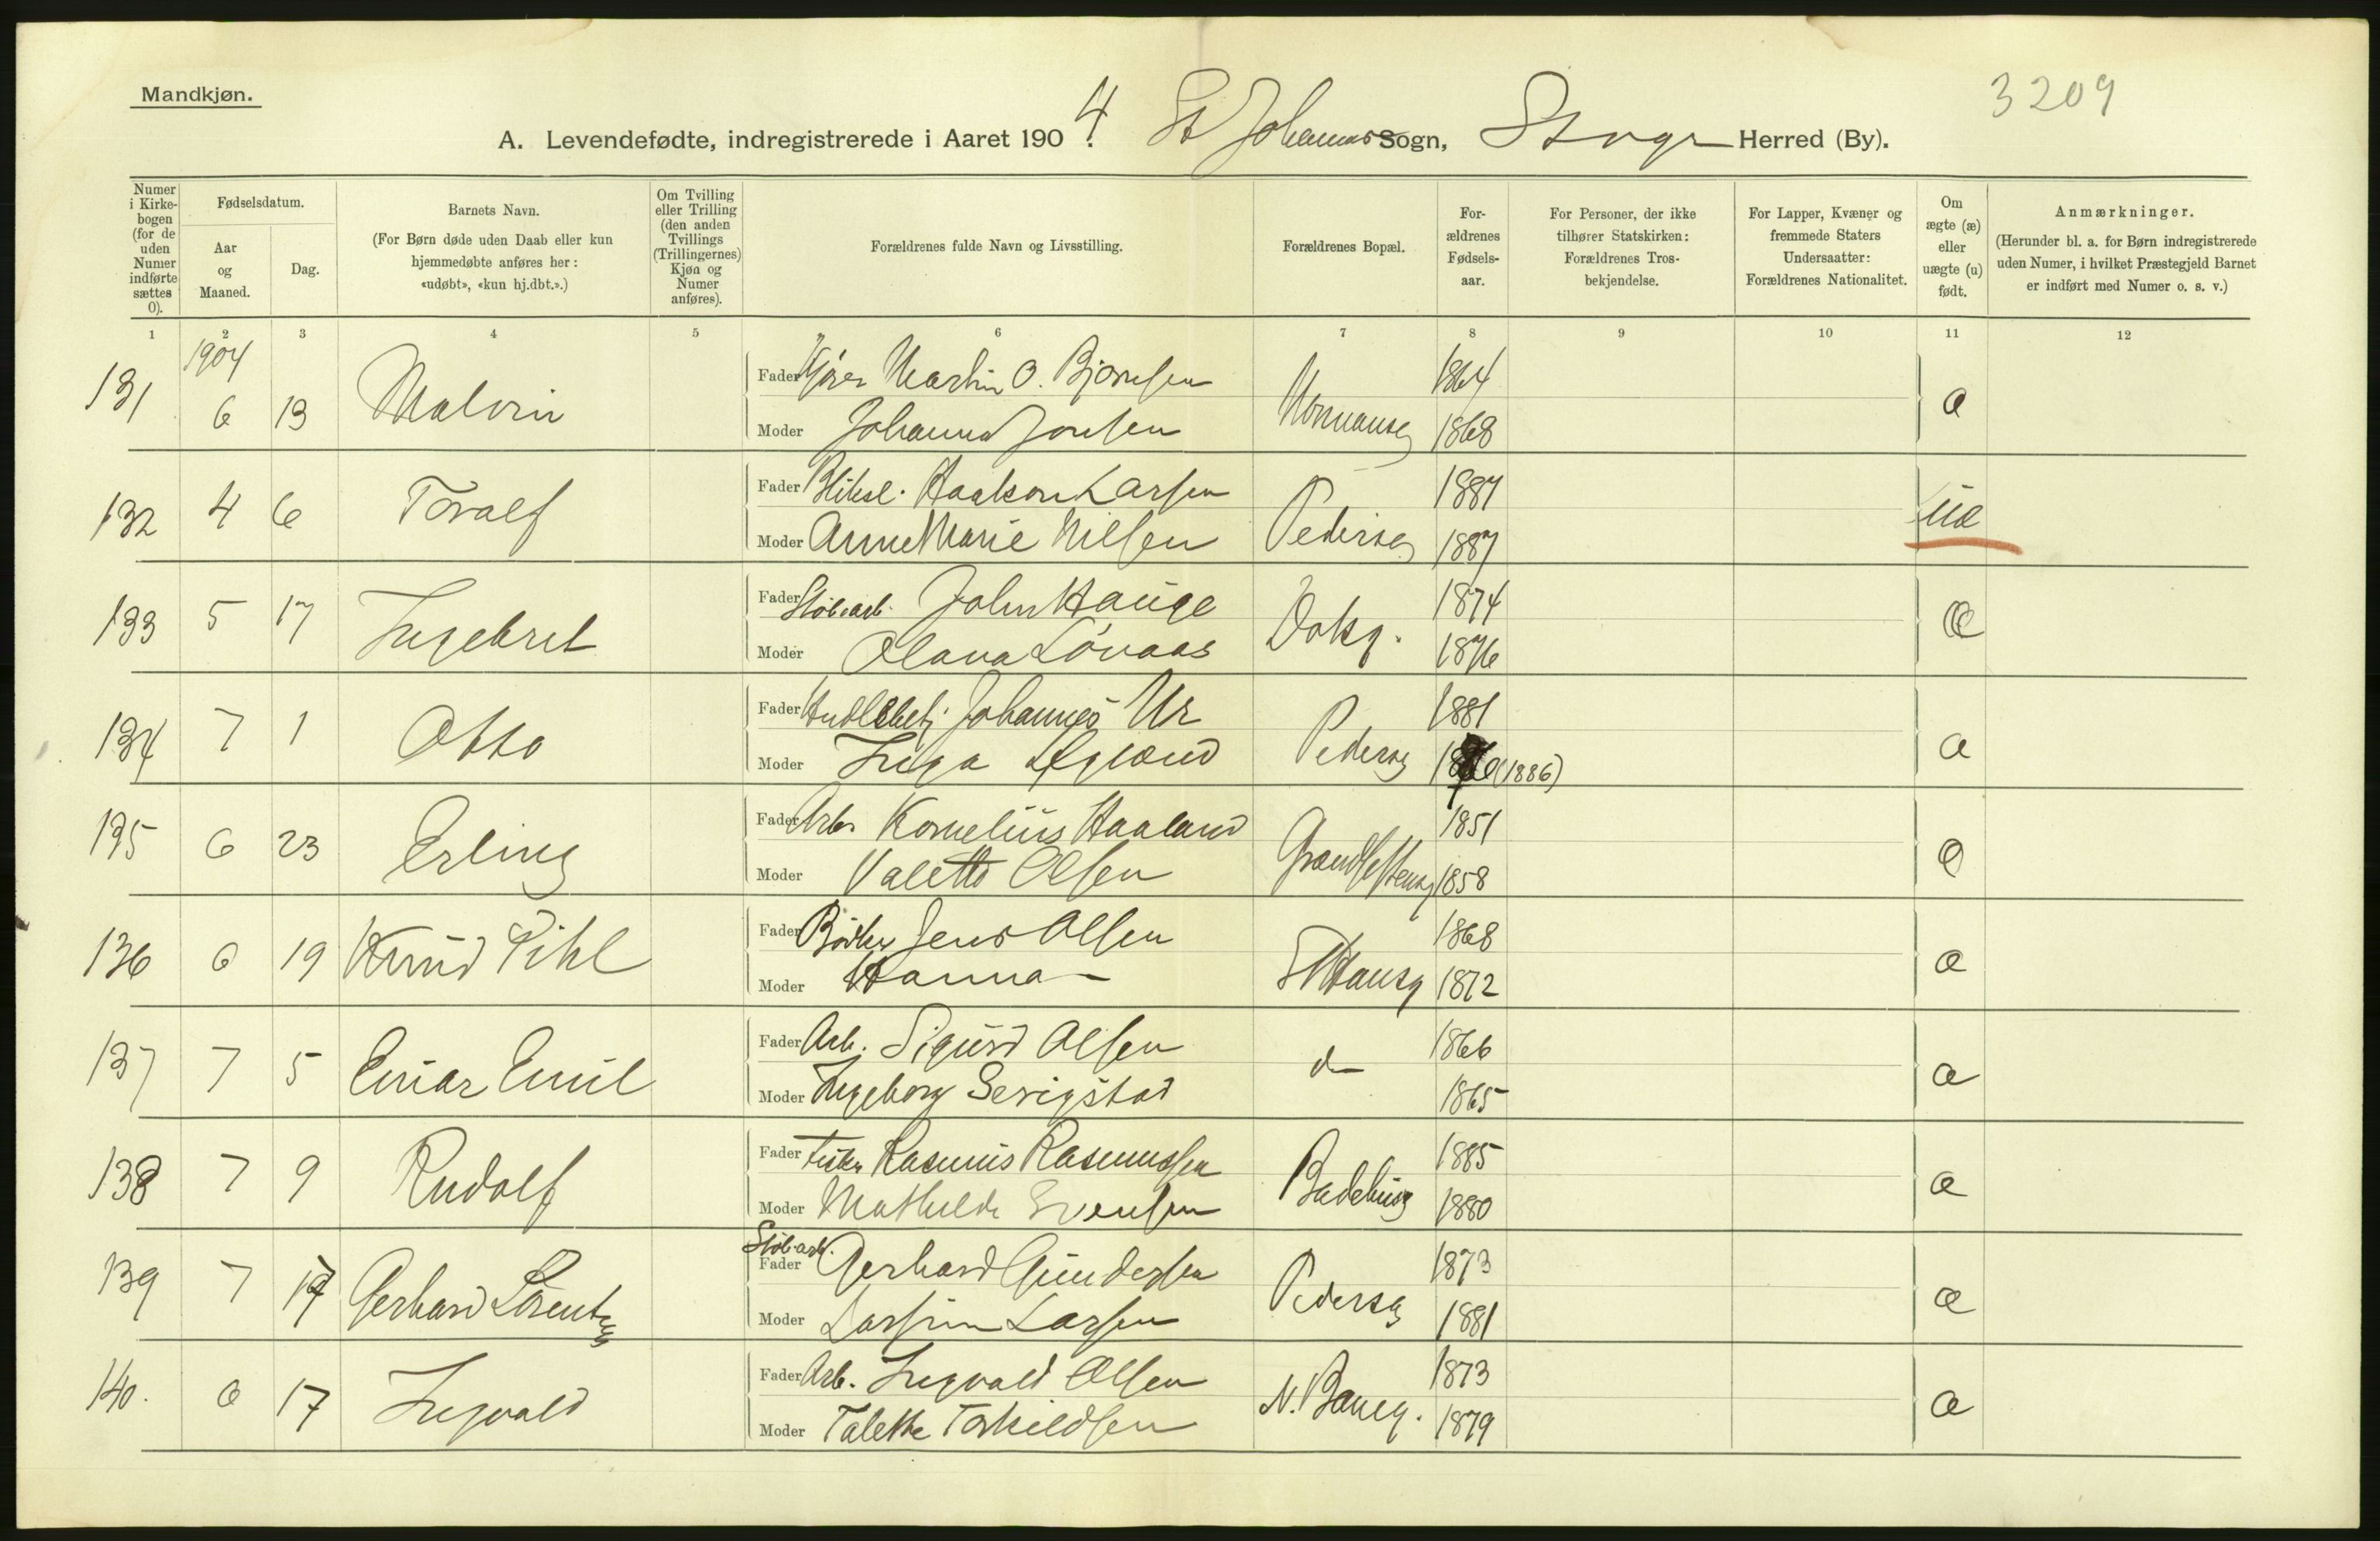 Mandkjøn.
3209
A. Levendefødte, indregistrerede i Aaret 1904. St Johannes Sogn, Stvgr Herred (By).
Numer i Kirkebogen (for de uden Numer indførte sættes 0).
Fødselsdatum.
Aar og Maaned.
Dag.
Barnets Navn.
(For Børn døde uden Daab eller kun hjemmedøbte anføres her: «udøbt», «kun hj.dbt.».)
Om Tvilling eller Trilling (den anden Tvillings (Trillingernes) Kjøn og Numer anføres).
Forældrenes fulde Navn og Livsstilling.
Forældrenes Bopæl.
Forældrenes Fødselsaar.
For Personer, der ikke tilhører Statskirken: Forældrenes Trosbekjendelse.
For Lapper, Kvæner og fremmede Staters Undersaatter: Forældrenes Nationalitet.
Om ægte (æ) eller uægte (u) født.
Anmærkninger.
(Herunder bl. a. for Børn indregistrerede uden Numer, i hvilket Præstegjeld Barnet er indført med Numer o. s. v.)
1 2 3 4 5 6 7 8 9 10 11 12
1904
131 6 13 Malvin Fader Martin O. Bjørnsen 1864 æ
Moder Johanna Jonsen 1868
132 4 6 Toralf Fader Bliksl. Haakon Larsen Pedersg 1887 uæ
Moder Anne Marie Nilsen 1887
133 5 17 Ingebret Fader Støbarb. John Hauge Voksg. 1874 æ
Moder Olava Lövaas 1876
134 7 1 Otto Fader Johannes Ur Pedersg 1881 æ
Moder Inga (1886)
135 6 23 Erling Fader Arb. Kornelius Haaland 1851 æ
Moder Valette Olsen 1858
136 6 19 Knud Pihl Fader Bödker Jens Olsen St Hansg 1868 æ
Moder Hanna — 1872
137 7 5 Einar Emil Fader Arb. Sigurd Olsen d— 1866 æ
Moder Ingeborg Serigstad 1865
138 7 9 Rudolf Fader Rasmus Rasmussen Badehusg 1885 æ
Moder Mathilde Svensen 1880
139 7 17 Gerhard Lorentz Støbarb. Fader Gerhard Gundersen Pedersg 1873 æ
Moder Larsine Larsen 1881
140. 6 17 Ingvald Fader Arb. Ingvald Olsen N. Baneg. 1873 æ
Moder Talette Torkildsen 1879